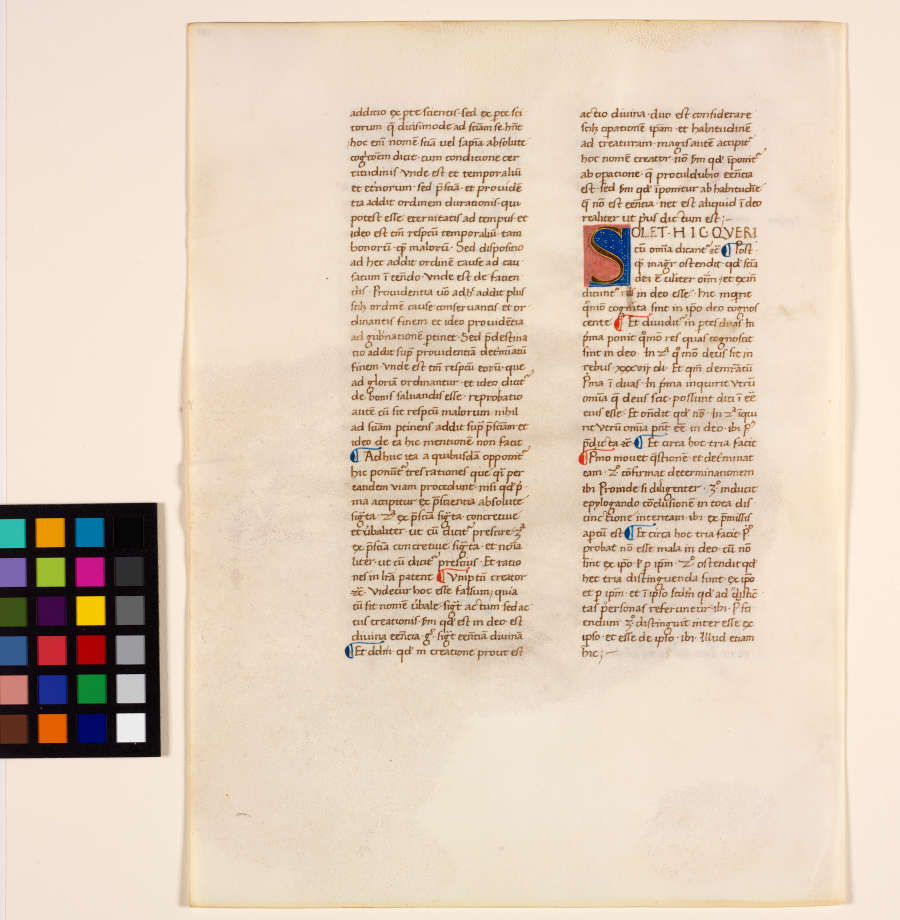 additio ex pte scientis · sed ex pte sci
torum q̄ diuersimode ad sciām se hn̄t
hoc em̄ nomē sciā uel sapīa absolute
cognitōem dicit · cum conditione cer
titudinis vnde est et temporaliū
et etn̄orum · sed p̄sciā · et prouidē
tia addit ordinem durationis · qui
potest esse eternitatis ad tempus · et
ideo est tm̄ respcū temporaliū tam
bonorū · q̄ malorū · Sed dispositio
ad hec addit ordinē cause ad cau
satum ī eēndo · Vnde est de facien
dis · Prouidentia uō adhᷣ addit plus
scilꝫ ordinē cause conseruantis · et or
dinantis finem · et ideo prouidētia
ad gubnationē ptinet · Sed p̄destina
tio addit sup̄ prouidentiā determīatū
finem · vnde est tm̄ respcū eorū · que
ad gloriā ordinantur · et ideo dicit᷑
de bonis saluandis esse · reprobatio
autē cū sit respcū malorum · nihil
ad sciam ptinens addit sup̄ p̄sciam · et
ideo de ea hic mentionē non facit
¶ Adhuc ita a quibusdā opponit᷑
hic ponūt᷑ tres rationes que q̄si per
eandem uiam procedunt · nisi qd̄ p̄
ma accipitur ex p̄scientia absolute
sig̃ta · 2ᵃ ex p̄scia sig̃ta concretiue
et ūbaliter · ut cū dicit᷑ prescire · 3ᵃ
ex p̄scia concretiue sig̃ta · et noīa
liter · ut cū dicit᷑ prescius · Et ratio
nes in lr̄a patent ¶ Vniptū creator
⁊c̄ · Videtur hoc esse falsum · quia
cū sit nomē ūbale sig̃t actum sed ac
tus creationis · s̄m qd̄ est in deo · est
diuina eēntia · gᵒ sig̃t eēntiā diuinā
¶ Et dd̄m qd̄ in creatione prout est
actio diuina · duo est considerare
scilꝫ opationē ipam · et habitudinē
ad creaturam · magis autē accipit᷑
hoc nomē creator nō s̄m qd̄ īponit᷑
ab opatione · q̄ proculdubio eēntia
est · sed s̄m qd̄ īponitur ab habitudīe
q̄ nō est eēntia · nec est aliquid ī deo
realiter ut p̄us dictum est ;–
SOLET · HIC QVERI
cū omīa dicant᷑ ⁊c̄ ¶ Post
q̄ magr̄ ostendit · qd̄ sciā
dei ē uliter om̄ī · et q̄cū
dicunt᷑ in deo esse · hic inqrit
qūmō cognita sint in ipō deo cognos
cente · ¶ Et diuidit᷑ in ptes duas · In
p̄ma ponit qūmō res quas cognoscit
sint in deo · In 2ᵃ q̄mō deus sit in
rebus xxxvij di · Et qm̄
P̄ma ī duas · In p̄ma inquirit utrū
omīa q̄ deus scit · possunt dici ī eē
eius esse · Et ōndit qd̄ nō · In 2ᵃ īqui
rit utrū omīa pn̄t eē in deo · ibi p̄
p̄dicta ⁊c̄ ¶ Et circa hoc tria facit
¶ P̄mo mouet q̄stionē · et determinat
eam · 2ᵒ cōfirmat determinationem
ibi Proinde si diligenter · 3ᵒ inducit
epylogando cōclusionē in tota dis
tinctione intentam · ibi ex p̄missis
aptū est ¶ Et circa hoc tria facit · P̄
probat nō esse mala in deo · cū nō
sint ex ipō ł p ipm̄ · 2ᵒ ostendit qd̄
hec tria distinguenda sunt · ex ipo
et p ipm̄ · et ī ipso scdm̄ qd̄ ad distīc
tas personas referuntur · ibi · P̄ sci
endum 3ᵒ distinguit inter esse ex
ipso · et esse de ipso · ibi · Illud etiam
hic ;–